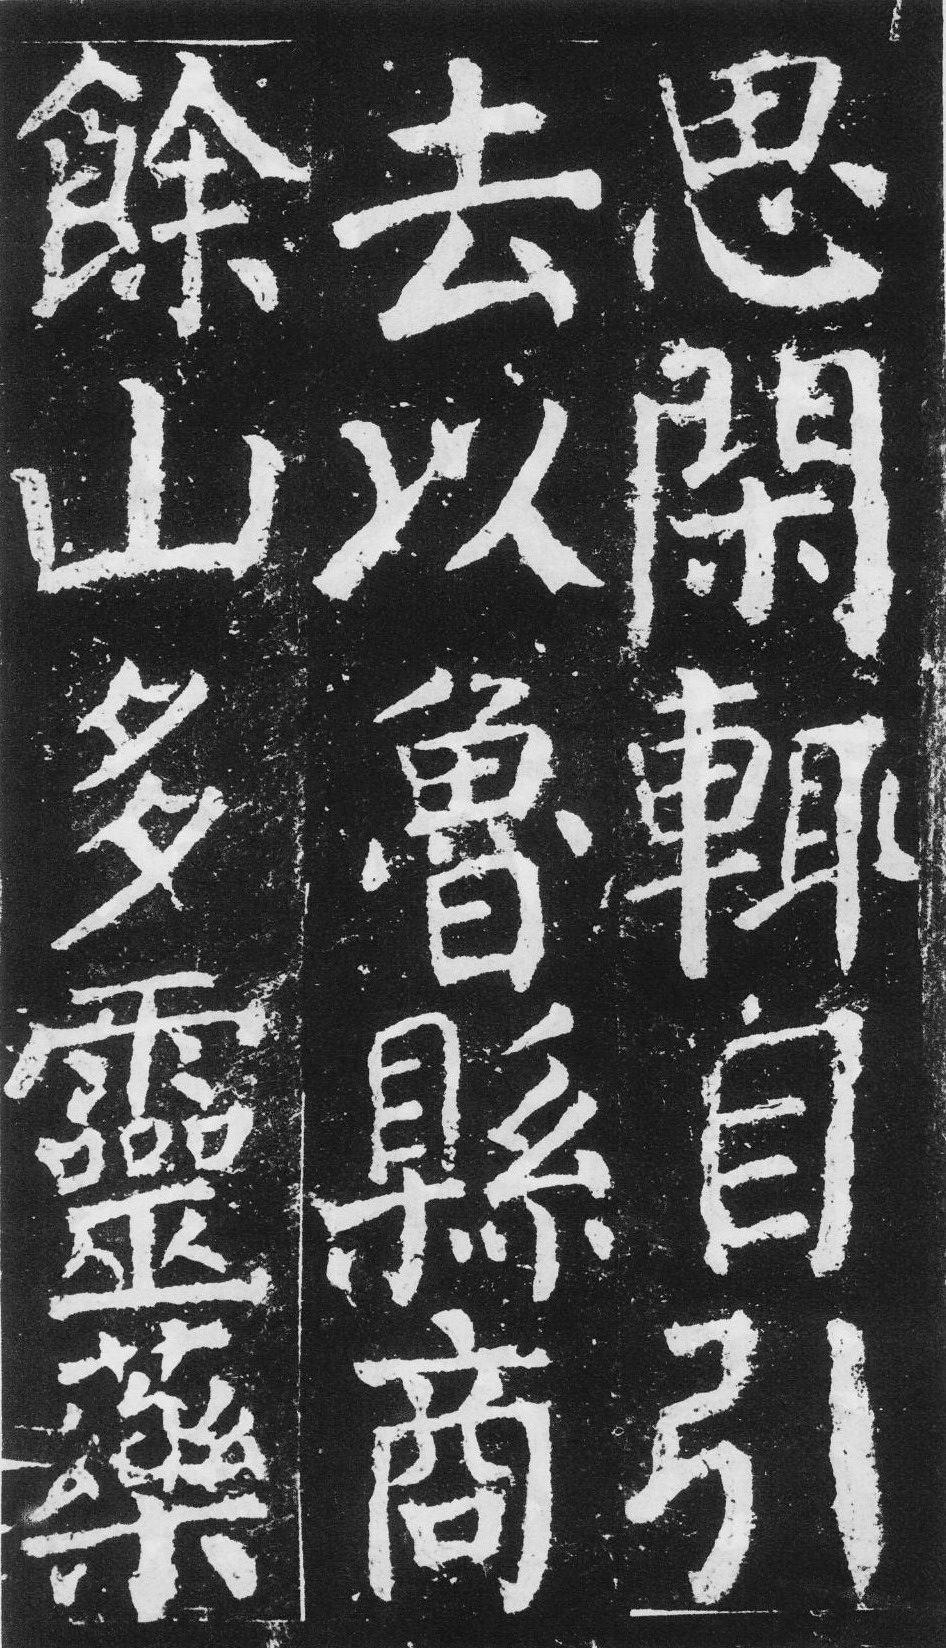 思閑輙自引
去以魯縣商
餘山多靈藥